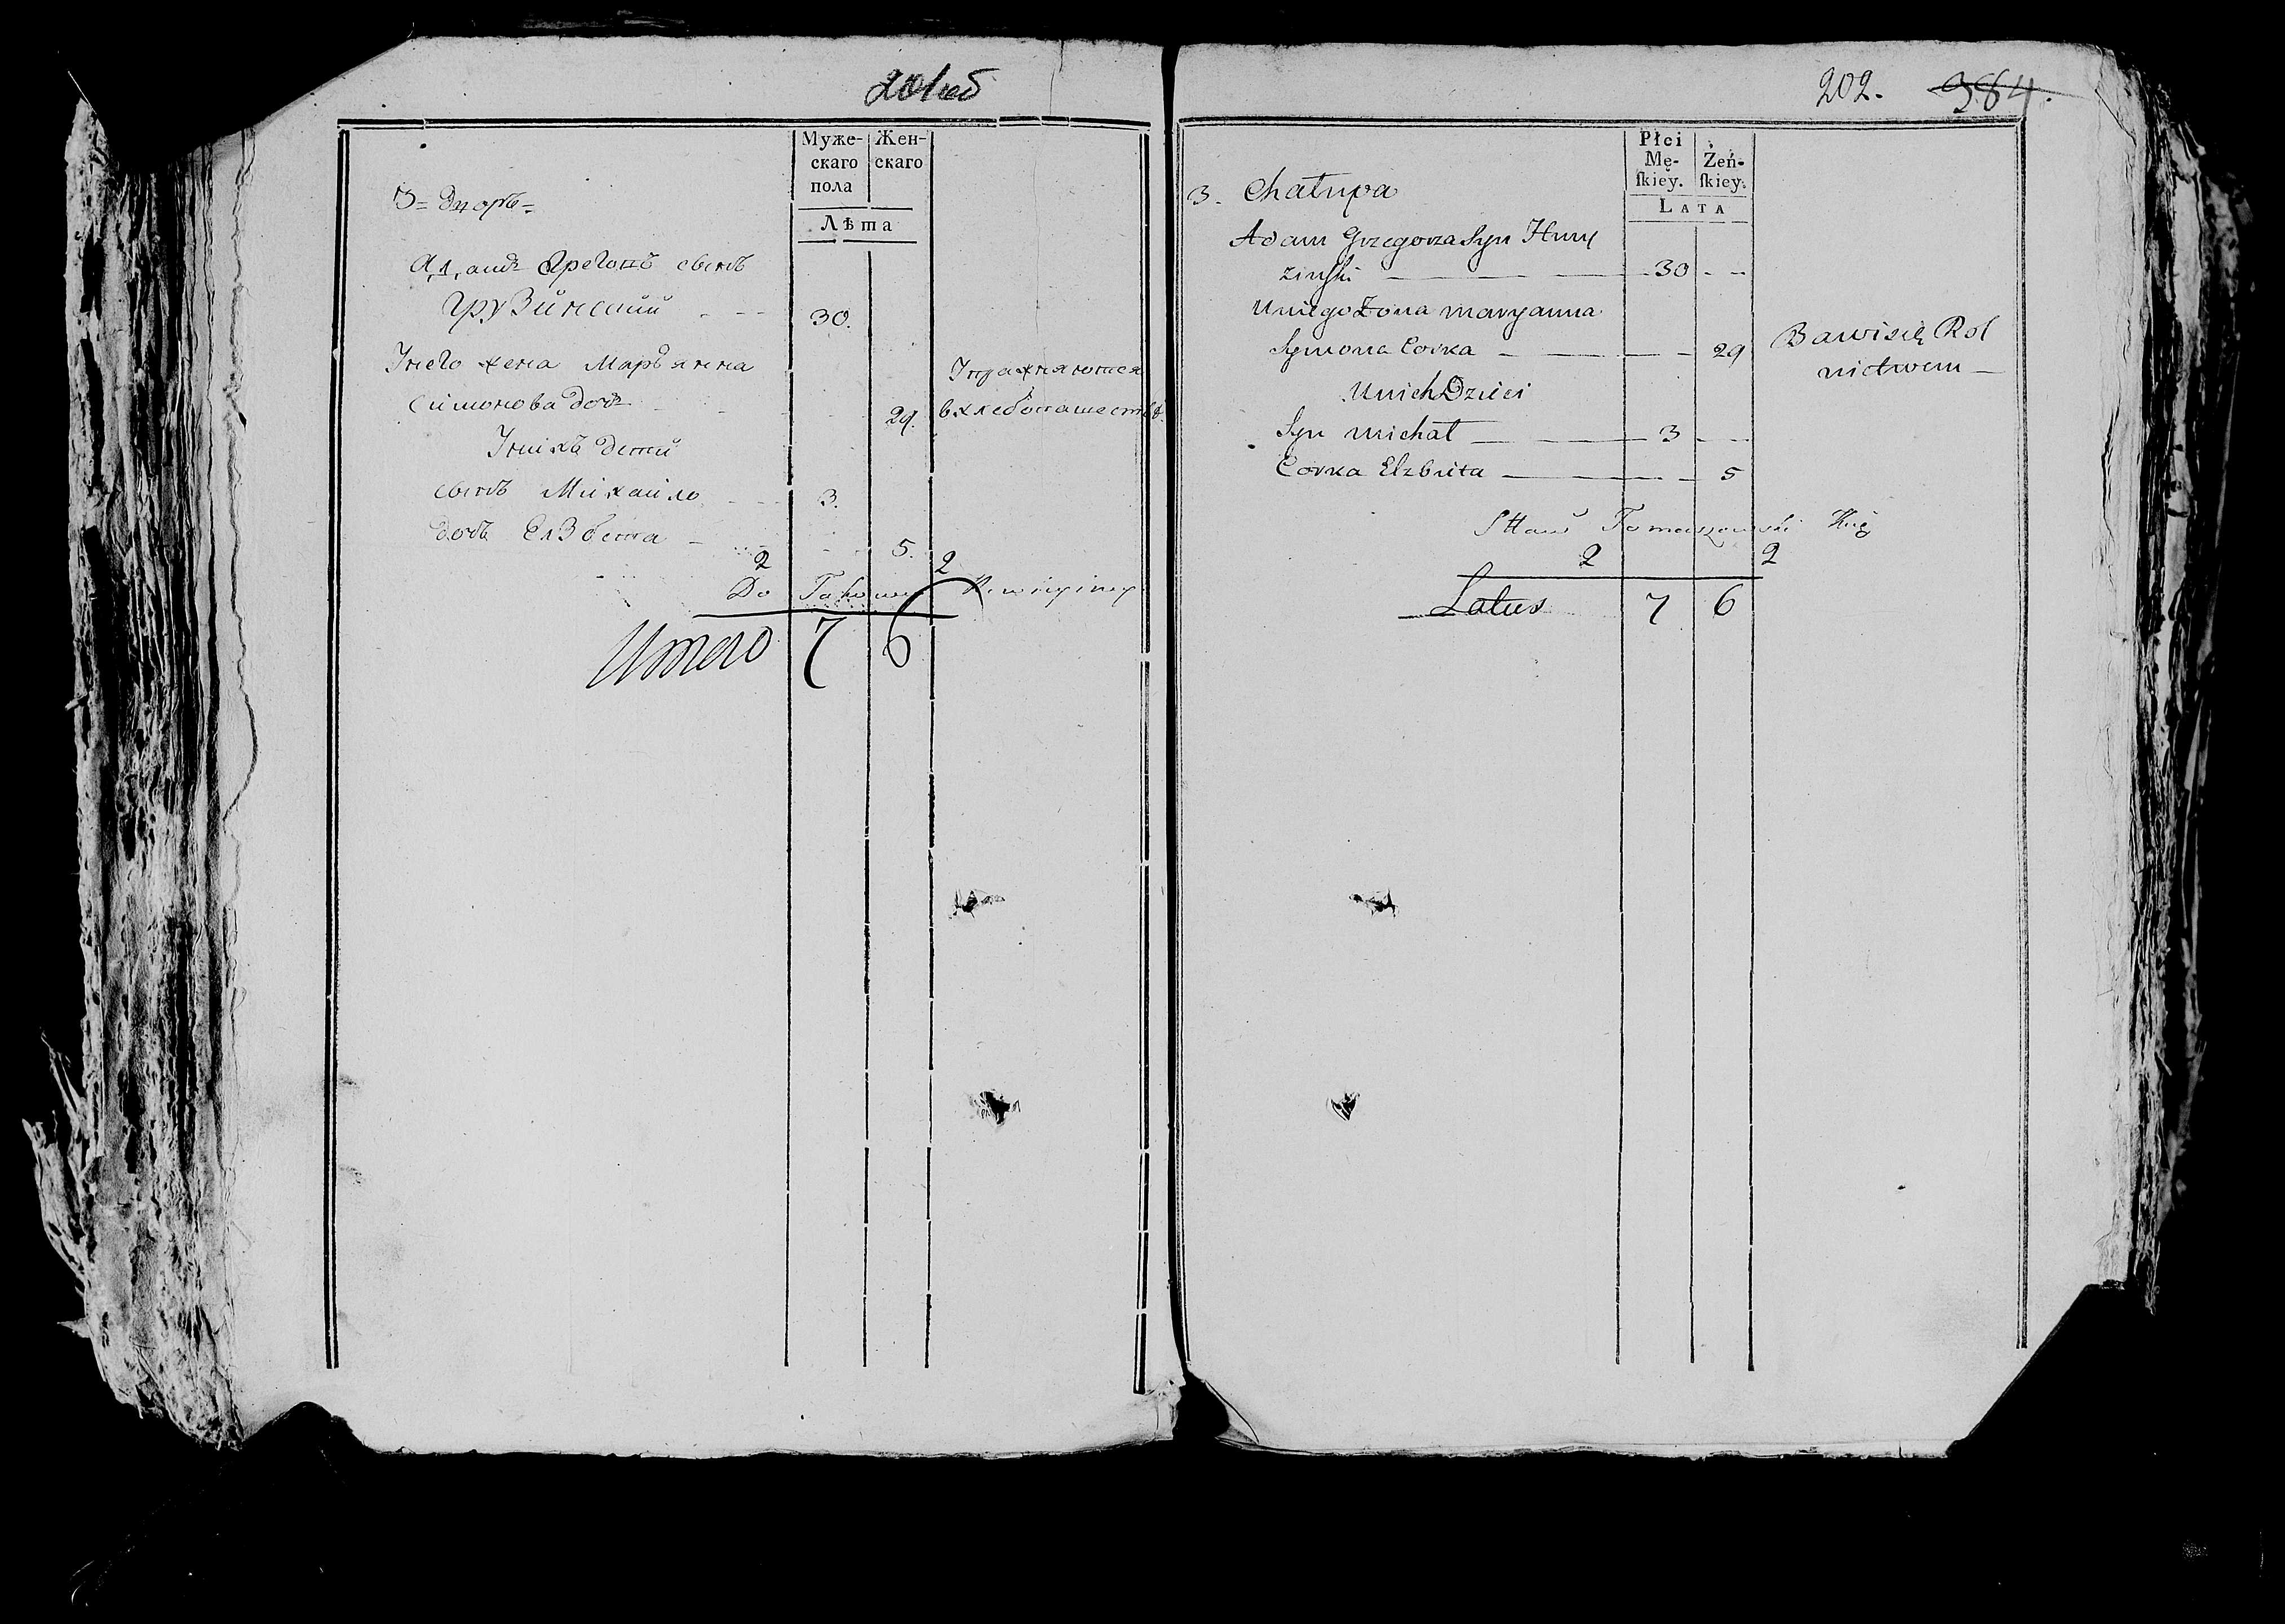 201 об
Муже-
скаго
пола
Жен-
скаго
Лѣта
3 = Дворъ =
Адамъ Грегоръ сынъ
Грузинский 30.
У него жена Марьянна
Симонова дочь 29.
Упражняются
в хлебопашестве
У нихъ детей
сынъ Михайло 3.
дочь Елзбета 5.
2 2
Do
Итого 7 6
202. 384.
Płci
Mę-
ſkiey.
Żeń-
ſkiey.
LATA
3. Chałupa
Adam Grzegorza Syn
zinski 30
U niego Zona maryanna
Symona Corka 29
Bawi się Rol
nictwem
U nich Dzieci
Syn michał 3
Corka Elzbieta 5
Tomaszewski
2 2
Latus 7 6